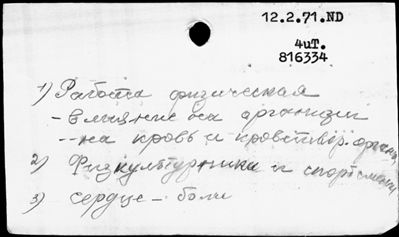 12.2.71.ND
4иТ.
816334
1) Работа физическая
- влияние на организм
-- на кровь и кроветвор. органы
2) Физкультурники и спортсмены
3) Сердце - боли